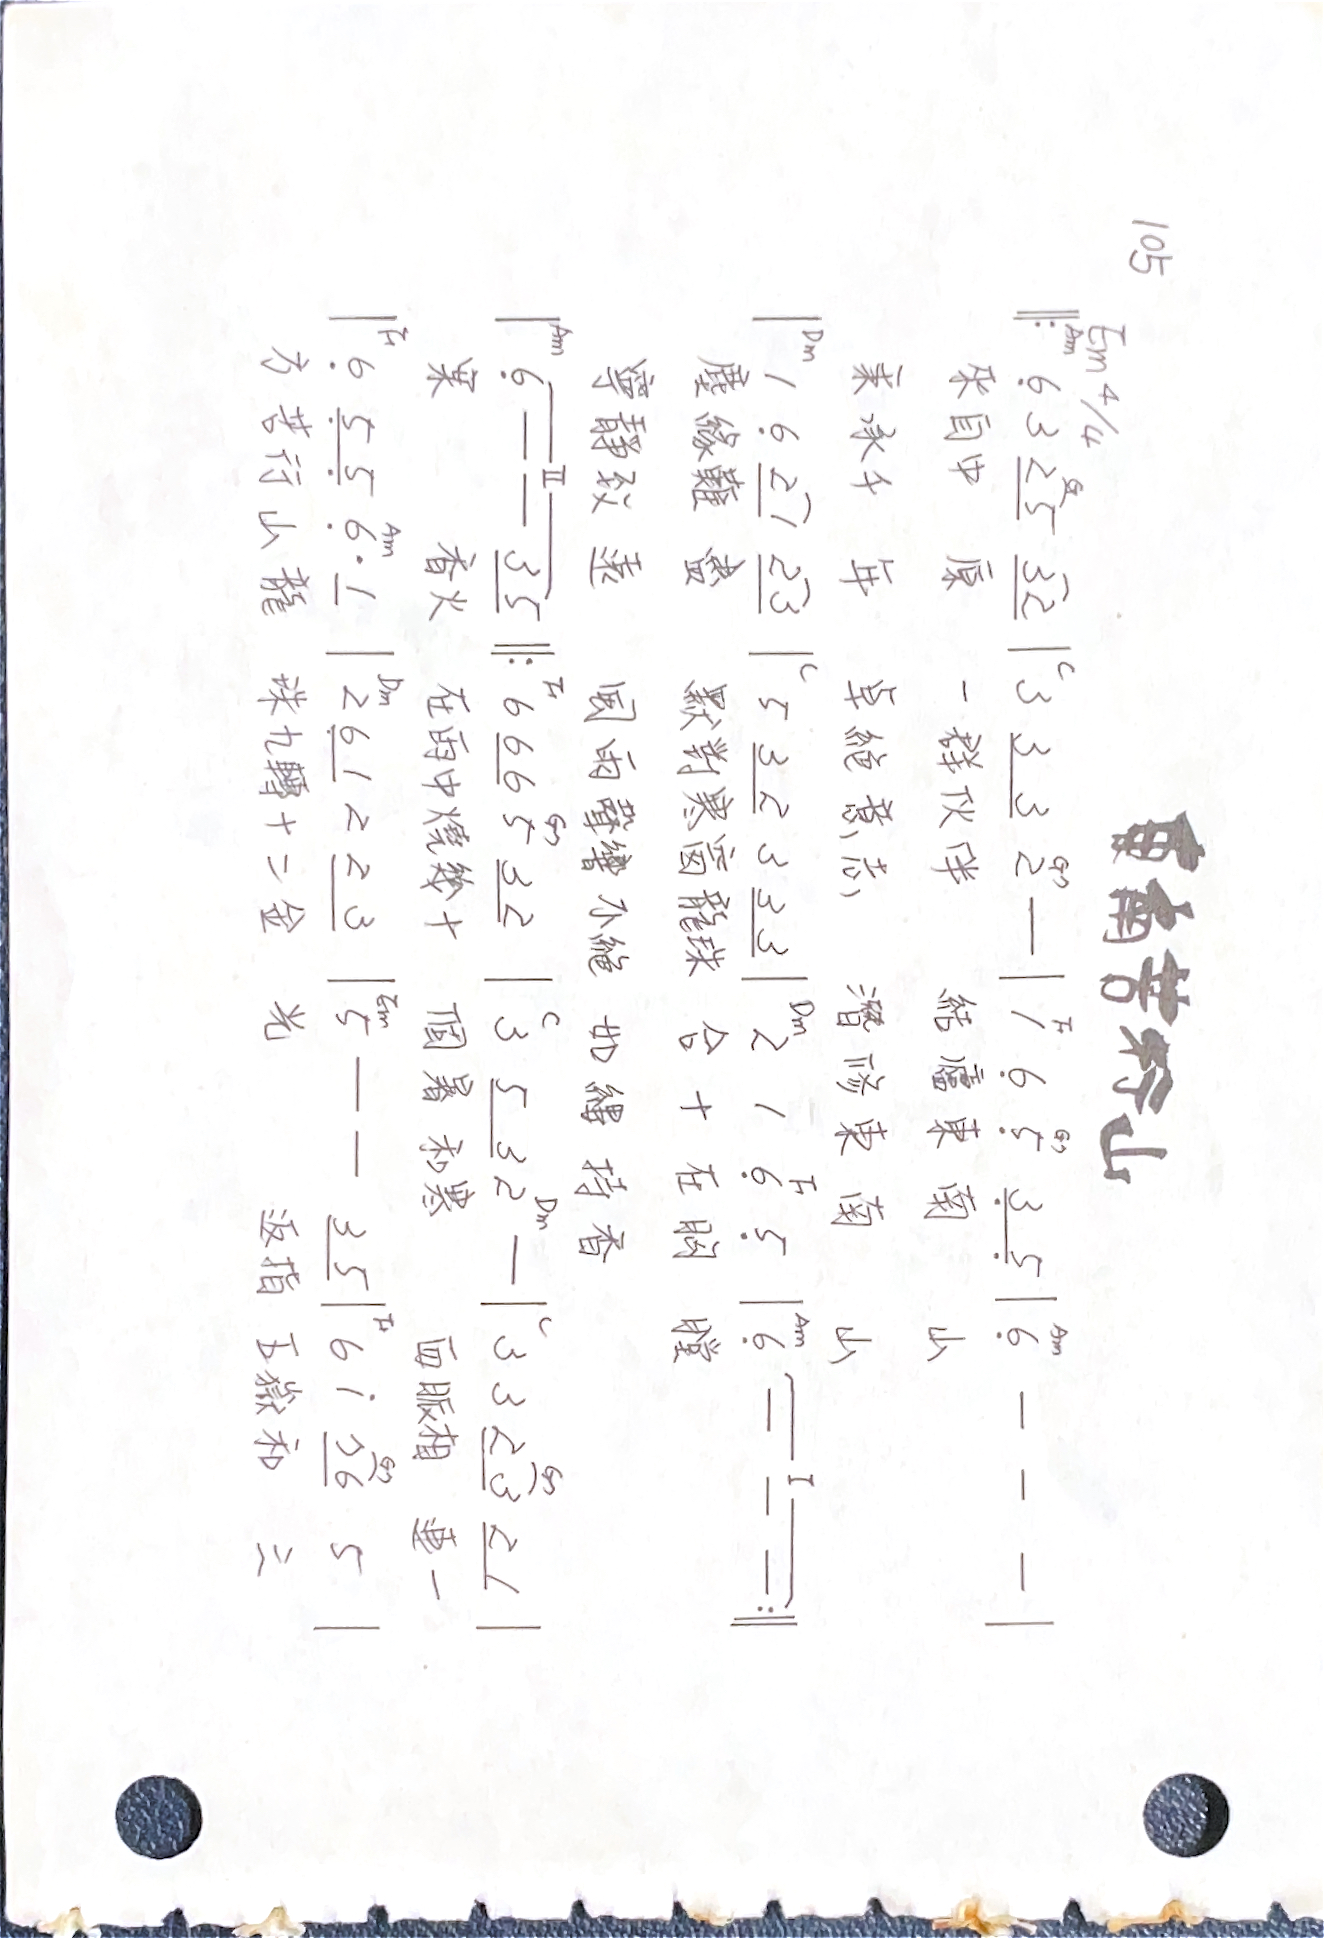 東南苦行山
105
Em 4/4
Am G C G7 F G7 Am
‖: 6̣ 3 2 5 3 2 | 3 3 3 2 — | 1 6̣ 5̣ 3̣ 5̣ | 6̣ — — — |
來自中 原 一群伙伴 結廬東南 山
秉承千 年 卓絕意志 潛修東南 山
Dm C Dm F Am I
| 1 6̣ 2 1 2 3 | 5 3 2 3 3 3 | 2 1 6̣ 5̣ | 6̣ — — — :‖
塵緣難 盡 默對寒窗龍珠 合十在胸 膛
寧靜致遠 風雨聲響不絕 如縷持香
Am II F G7 C Dm C G7
| 6̣ — — 3 5 ‖: 6 6 6 5 3 2 | 3 5 3 2 — | 3 3 2 3 2 1 |
案 香火 在雨中燒幾十 個暑和寒 血脈相 連一
F Am Dm Em F G7
| 6̣ 5̣ 5̣ 6̣· 1 | 2 6̣ 1 2 2 3 | 5 — — 3 5 | 6 i 7 6 5 |
方苦行山龍 珠九轉十二金 光 返指 五嶽和 三